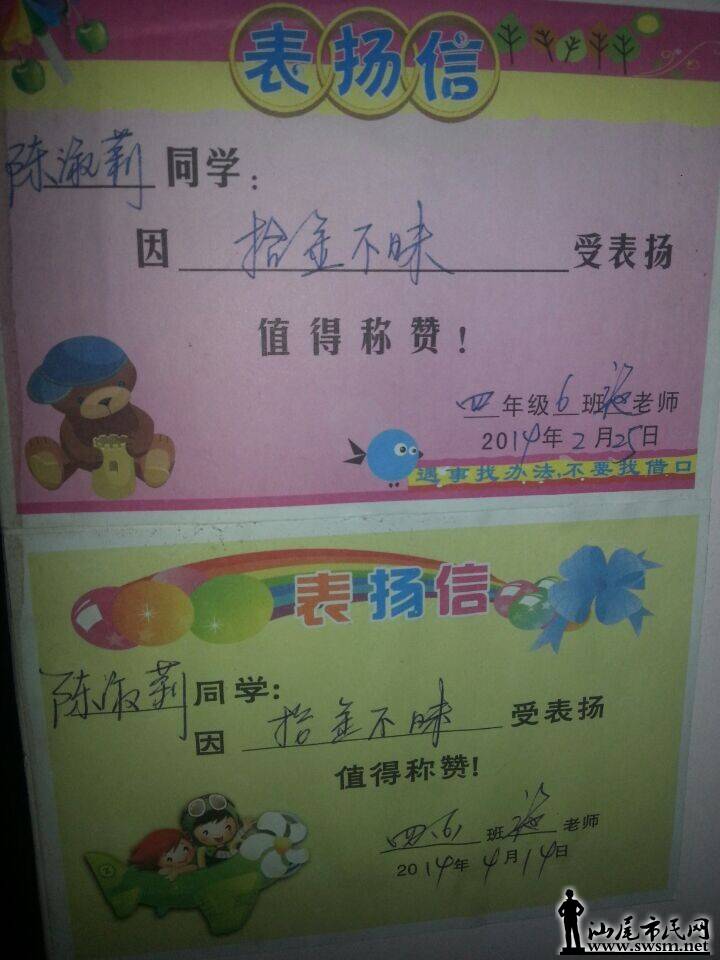 表扬信
陈淑莉同学：
因拾金不昧受表扬
值得称赞！
四年级6班 老师
2014年2月25日
遇事找办法,不要找借口
表扬信
陈淑莉同学：
因拾金不昧受表扬
值得称赞！
四(6)班 老师
2014年4月14日
汕尾市民网
www.swsm.net